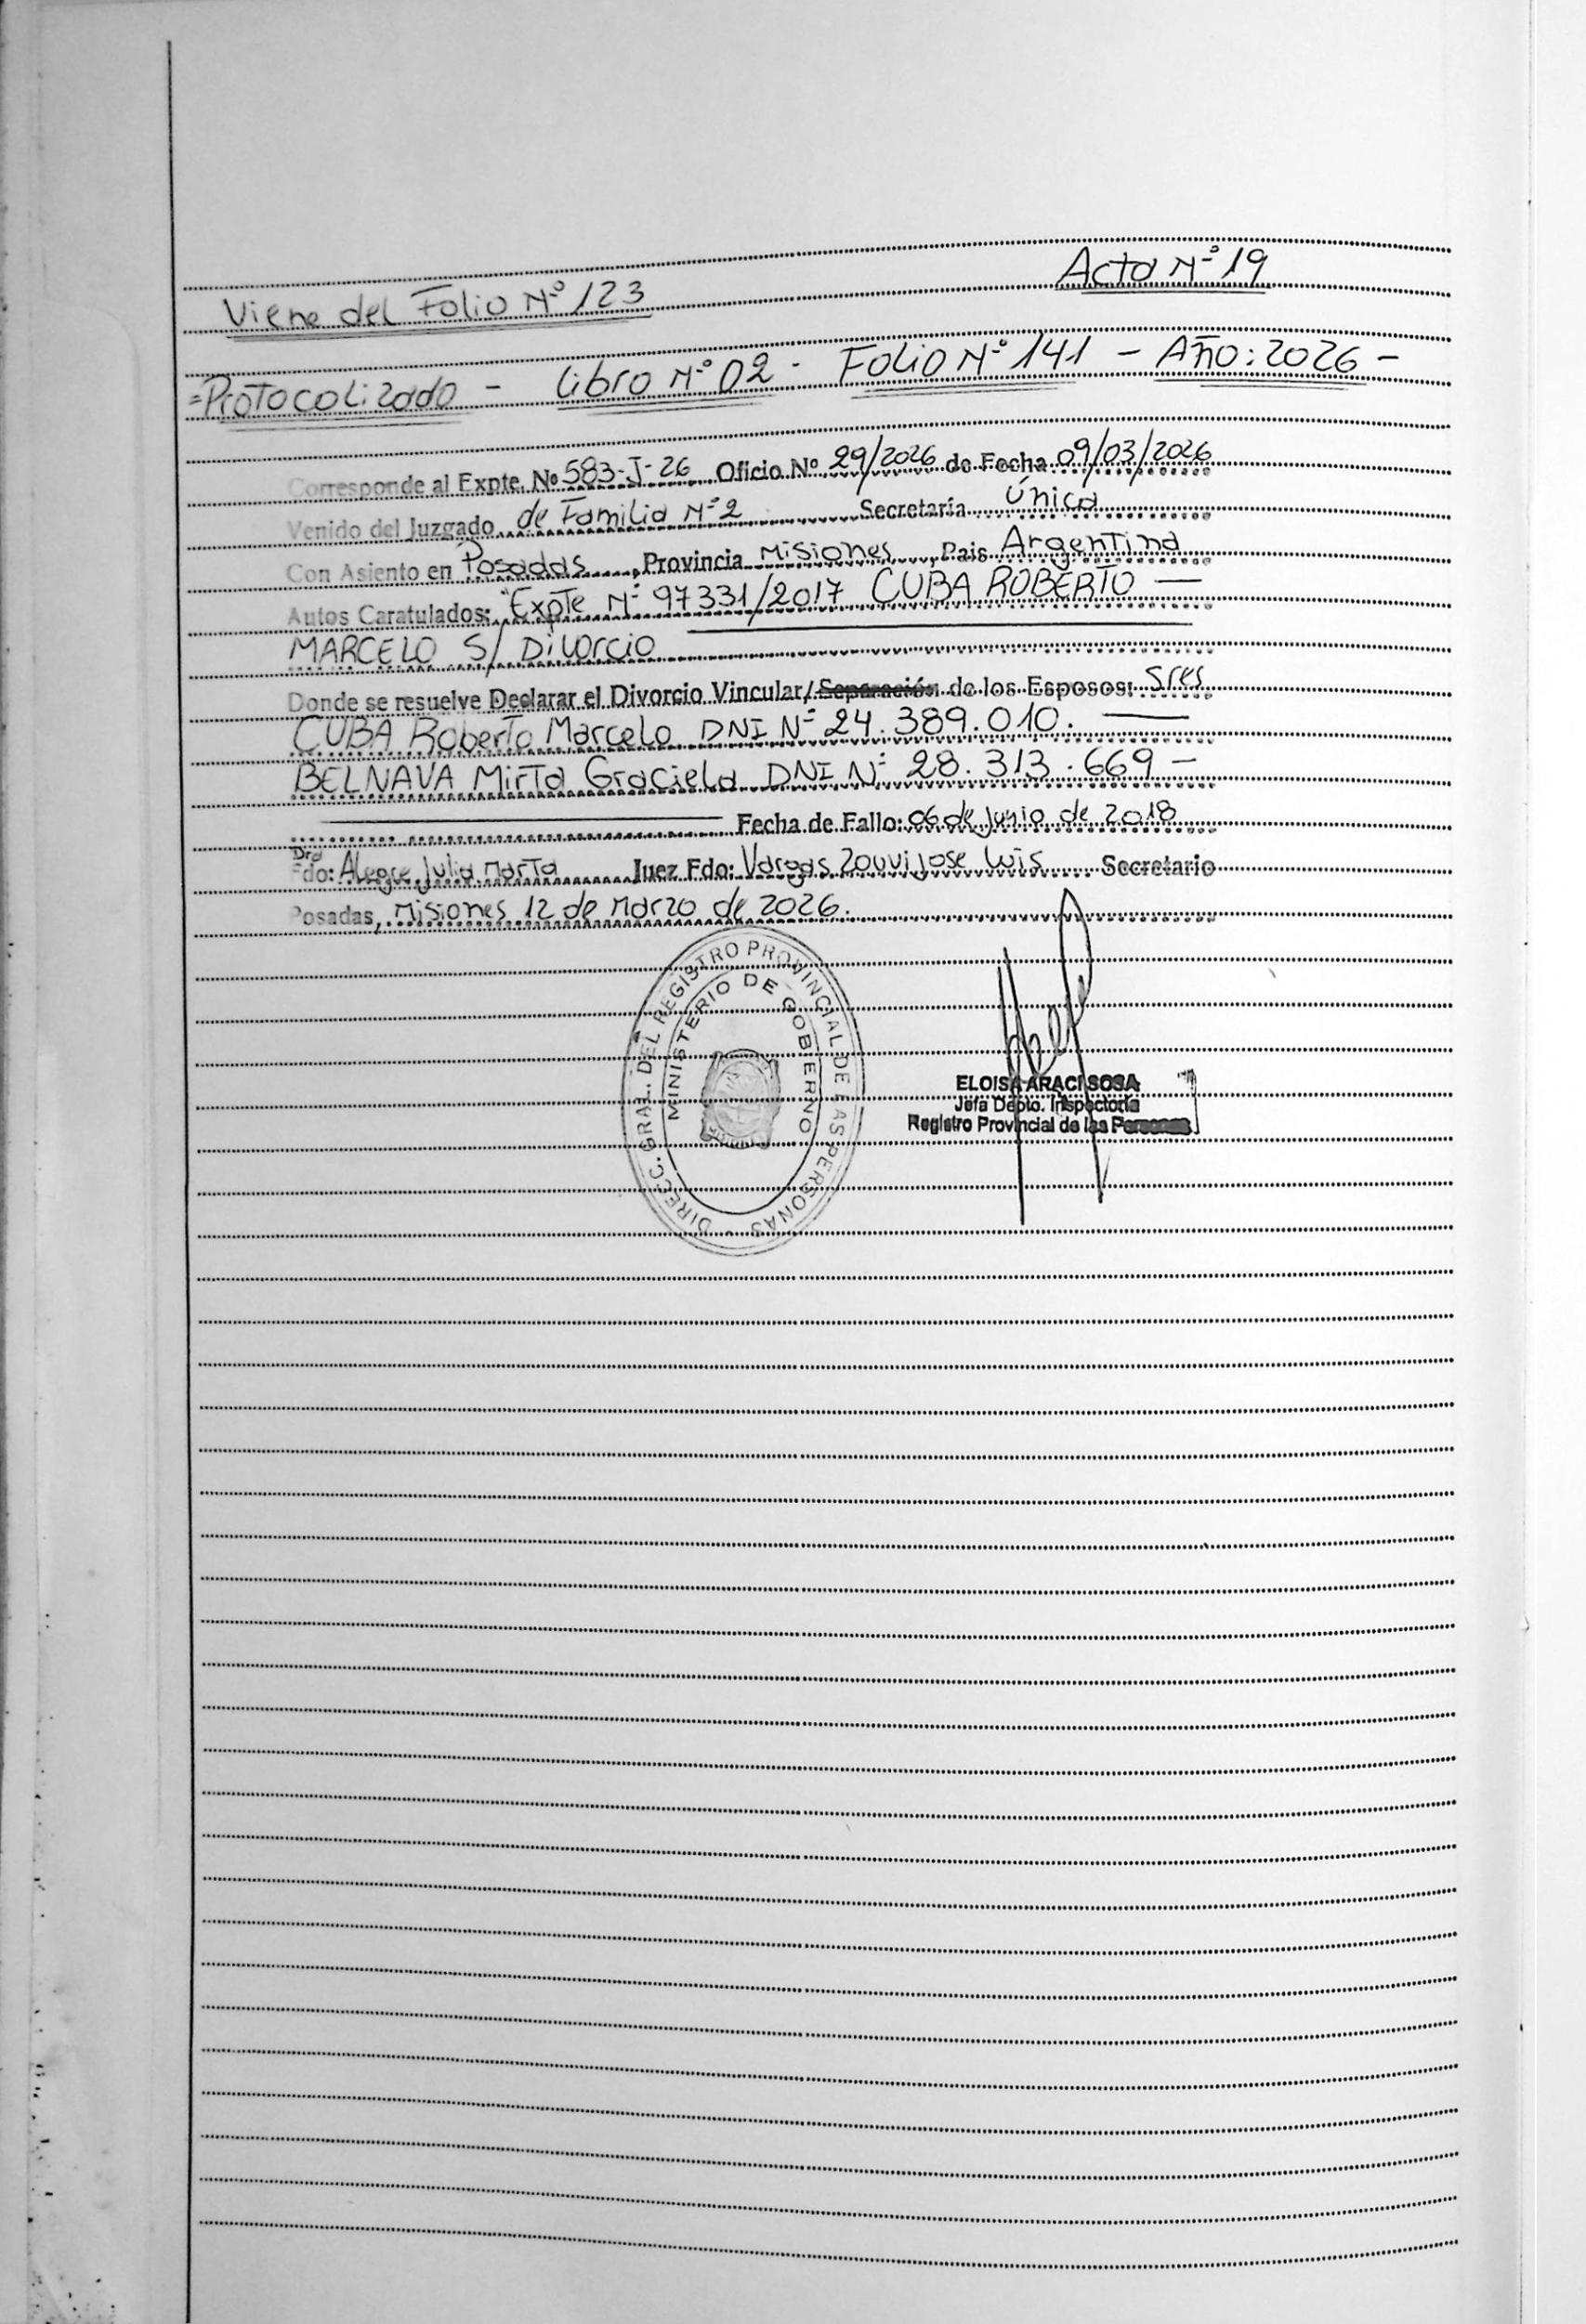 Acta N° 19
Viene del Folio N° 123
=Protocolizado - Libro N° 02 - Folio N° 141 - Año: 2026 -
Corresponde al Expte. Nº 583-J-26 Oficio Nº 29/2026 de Fecha 09/03/2026
Venido del Juzgado de Familia N° 2 Secretaría Única
Con Asiento en Posadas, Provincia Misiones, Pais Argentina
Autos Caratulados: "Expte N° 97331/2017 CUBA ROBERTO —
MARCELO S/ Divorcio
Donde se resuelve Declarar el Divorcio Vincular/Separación de los Esposos: Sres
CUBA Roberto Marcelo DNI N° 24.389.010. —
BELNAVA Mirta Graciela DNI N° 28.313.669 —
Fecha de Fallo: 06 de Junio de 2018
Dra
Fdo: Alegre Julia Marta Juez Fdo: Vargas Zouvi Jose Luis Secretario
Posadas, Misiones 12 de Marzo de 2026.
DIRECC. GRAL. DEL REGISTRO PROVINCIAL DE LAS PERSONAS
MINISTERIO DE GOBIERNO
ELOISA ARACI SOSA
Jefa Depto. Inspectoría
Registro Provincial de las Personas